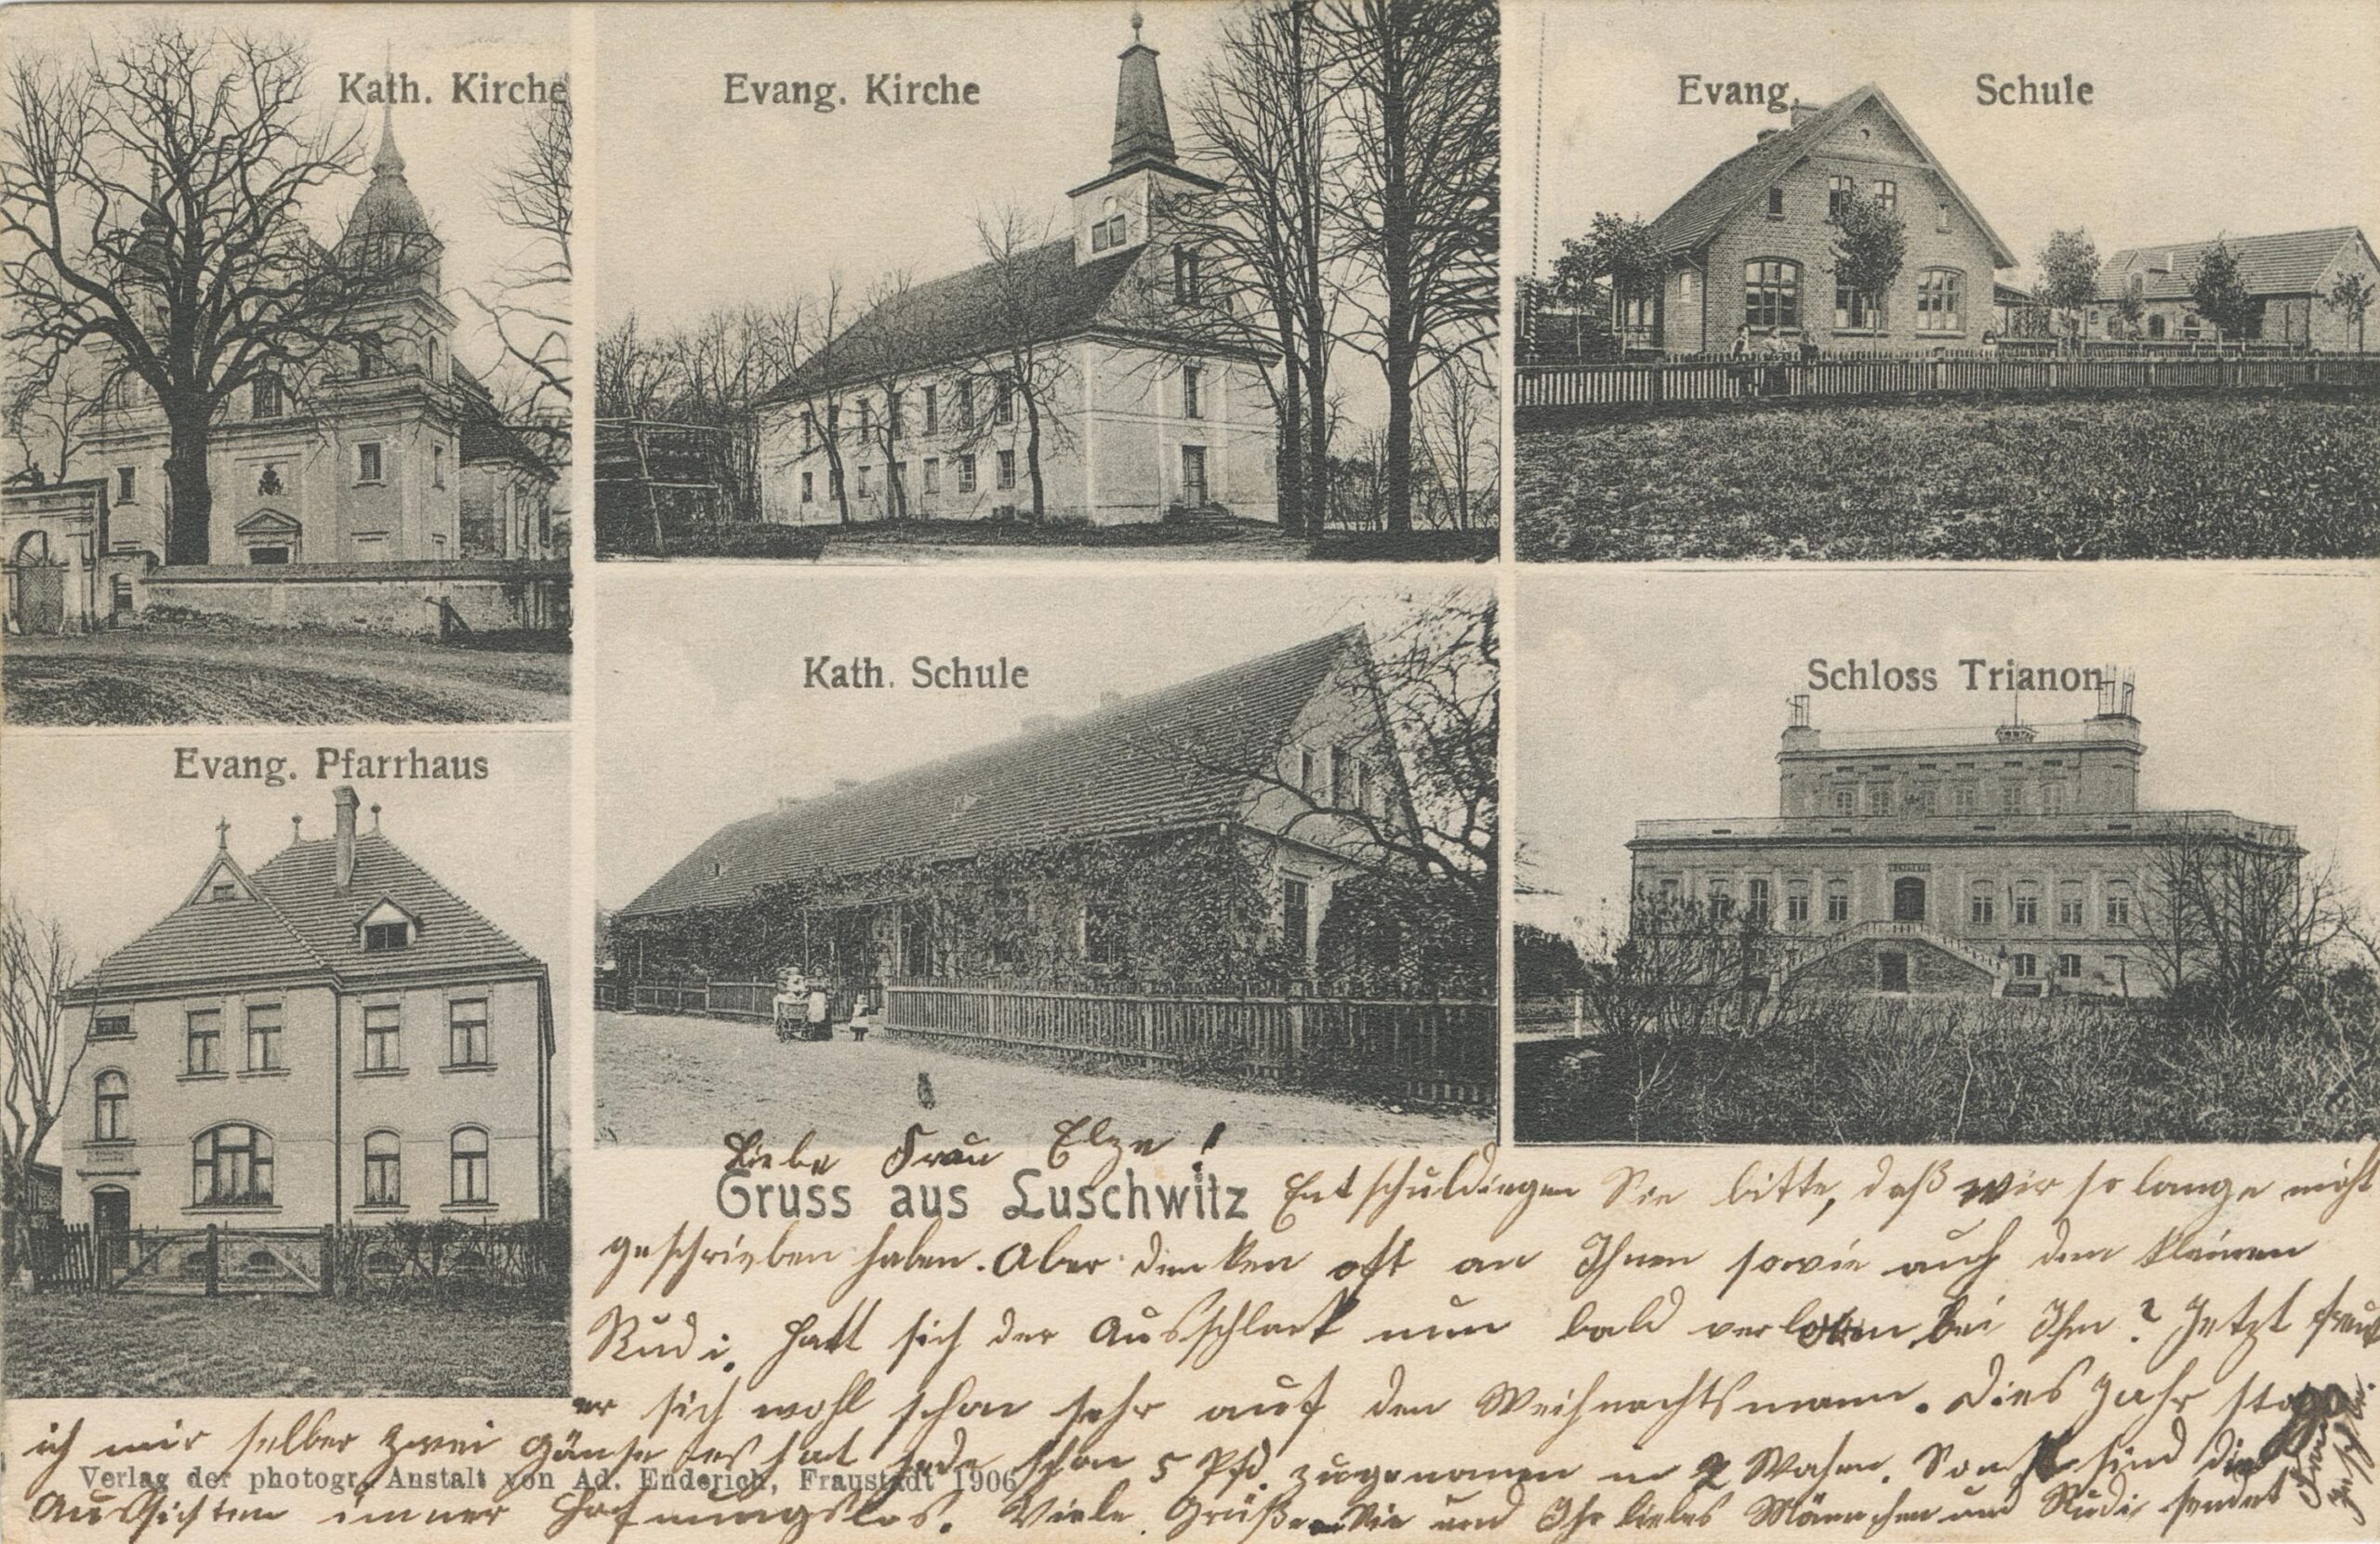 Kath. Kirche
Evang. Kirche
Evang. Schule
Kath. Schule
Schloss Trianon
Evang. Pfarrhaus
Liebe Frau Elze!
Gruss aus Luschwitz
Entschuldiegen Sie bitte, daß wir so lange nicht
geschrieben haben. Aber denken oft an Ihnen sowie auch den kleinen
Rudi. Hatt sich der Ausschlack nun bald verloren bei Ihm? Jetzt freut
er sich wohl schon sehr auf den Weihnachtsmann. Dies Jahr
ich mir selber zwei Gänse es hat jede schon 5 Pfd. zugenomen in 2 Wochen. Sonst sind die
Verlag der photogr. Anstalt von Ad. Enderich, Fraustadt 1906
Aussichten imner Hofnungslos. Viele Grüße Sie und Ihr liebes Männchen und Rudi sendet